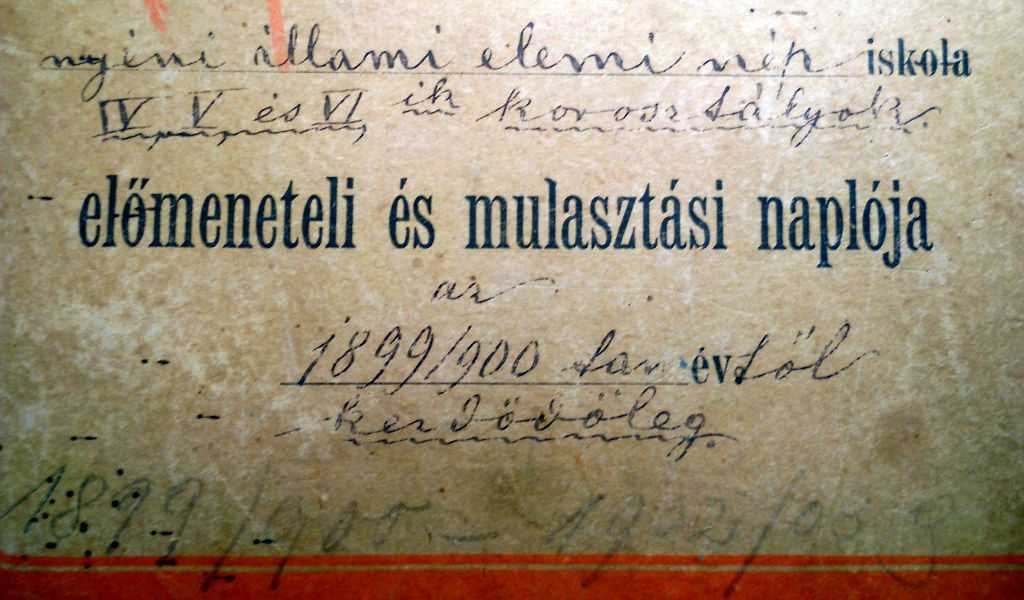 nyéni állami elemi nép iskola
IV, V, és VI, ik korosztályok.
előmeneteli és mulasztási naplója
az
1899/900 tanévtől
kezdődőleg.
1899/900 - 1902/03